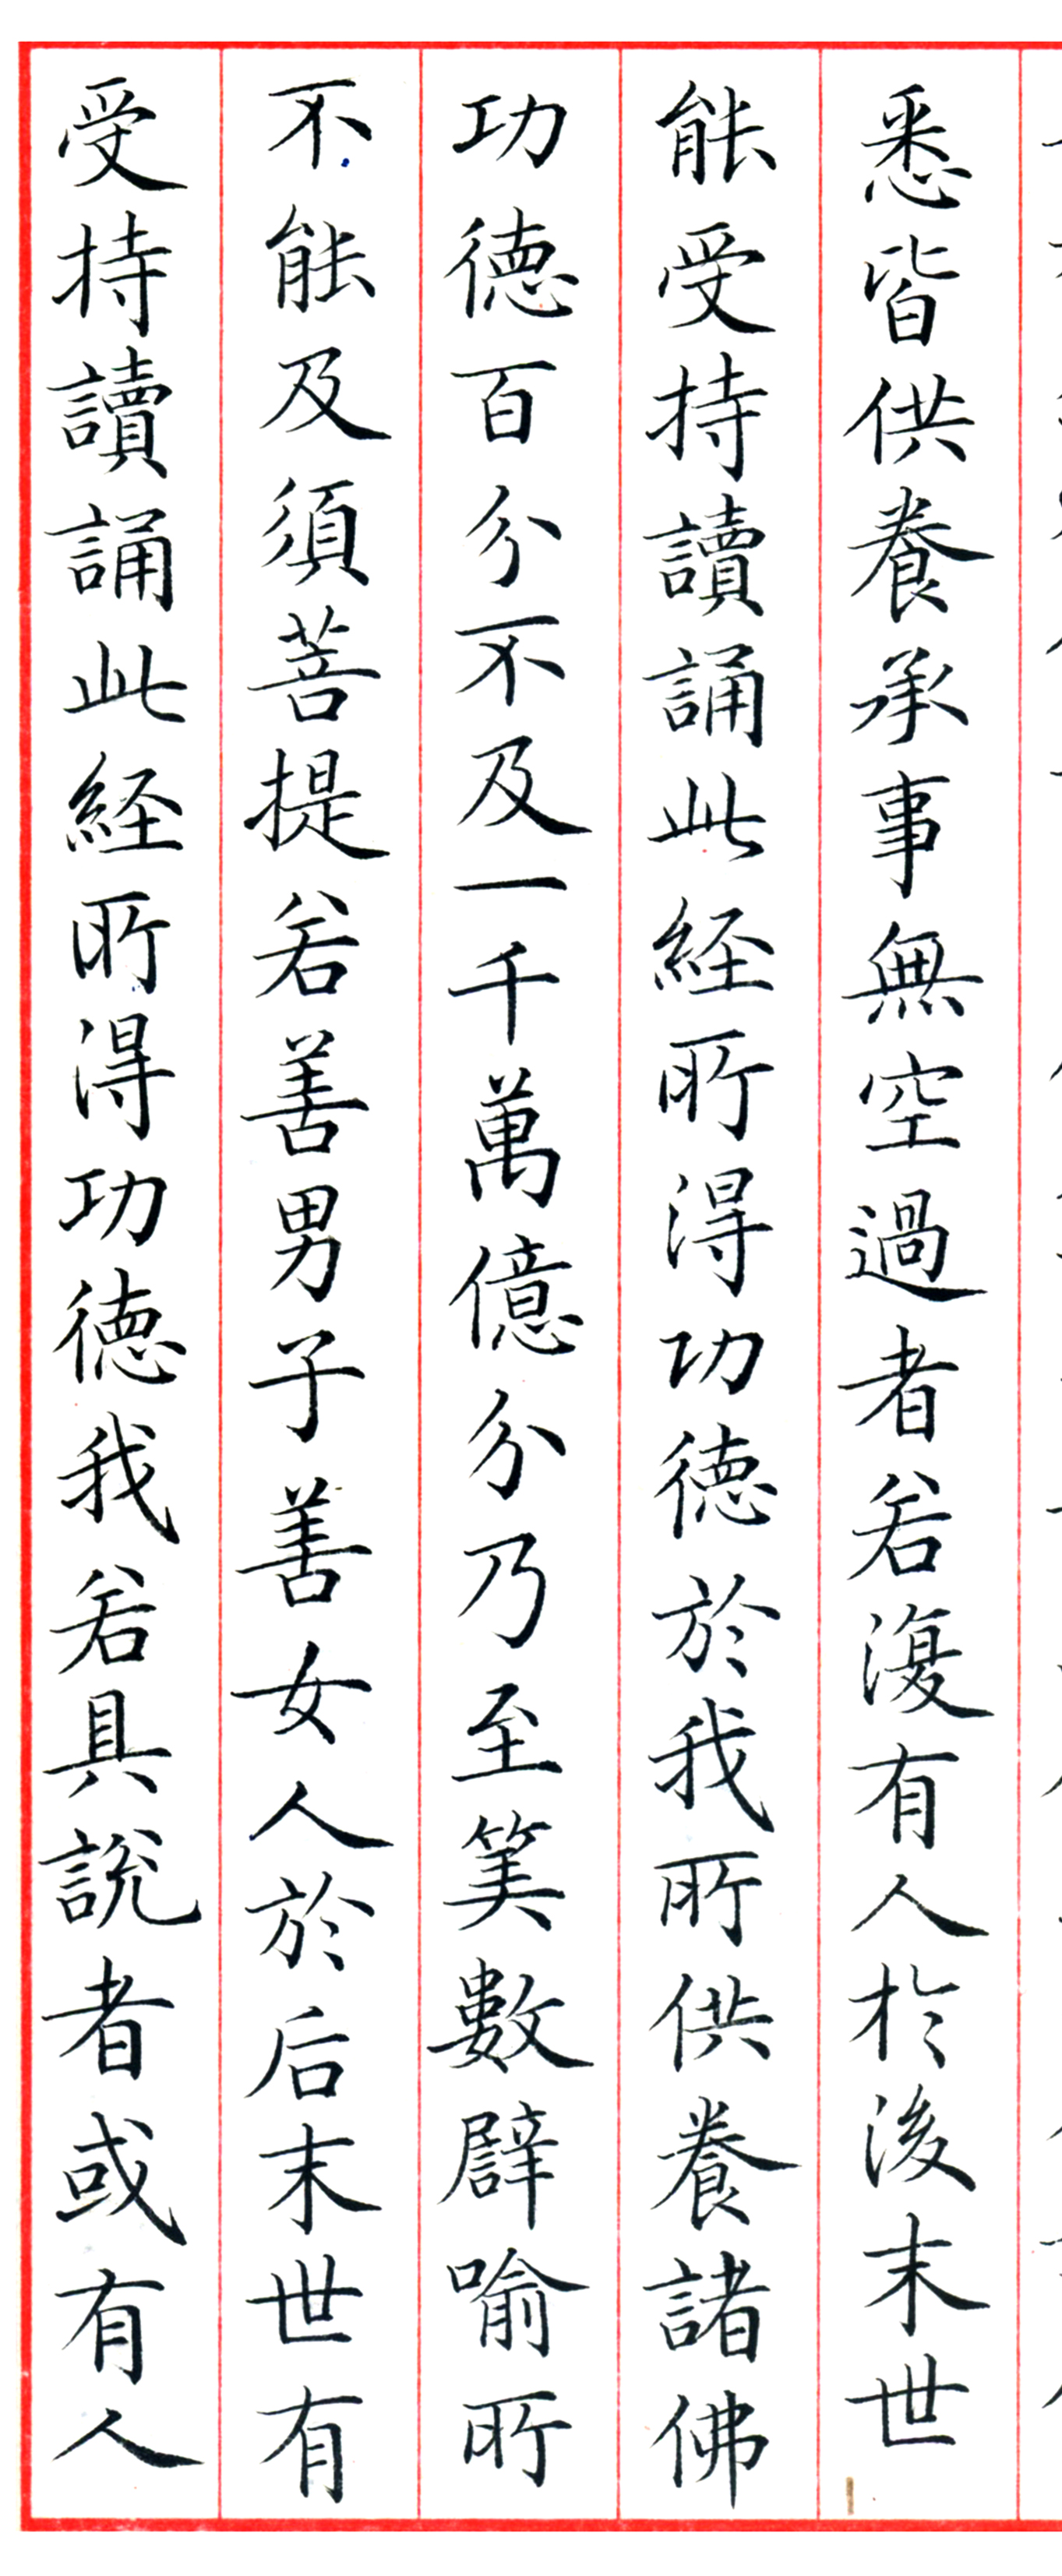 悉皆供養承事無空過者若復有人於後末世
能受持讀誦此経所得功徳於我所供養諸佛
功徳百分不及一千萬億分乃至筭數譬喻所
不能及須菩提若善男子善女人於后末世有
受持讀誦此経所得功徳我若具說者或有人